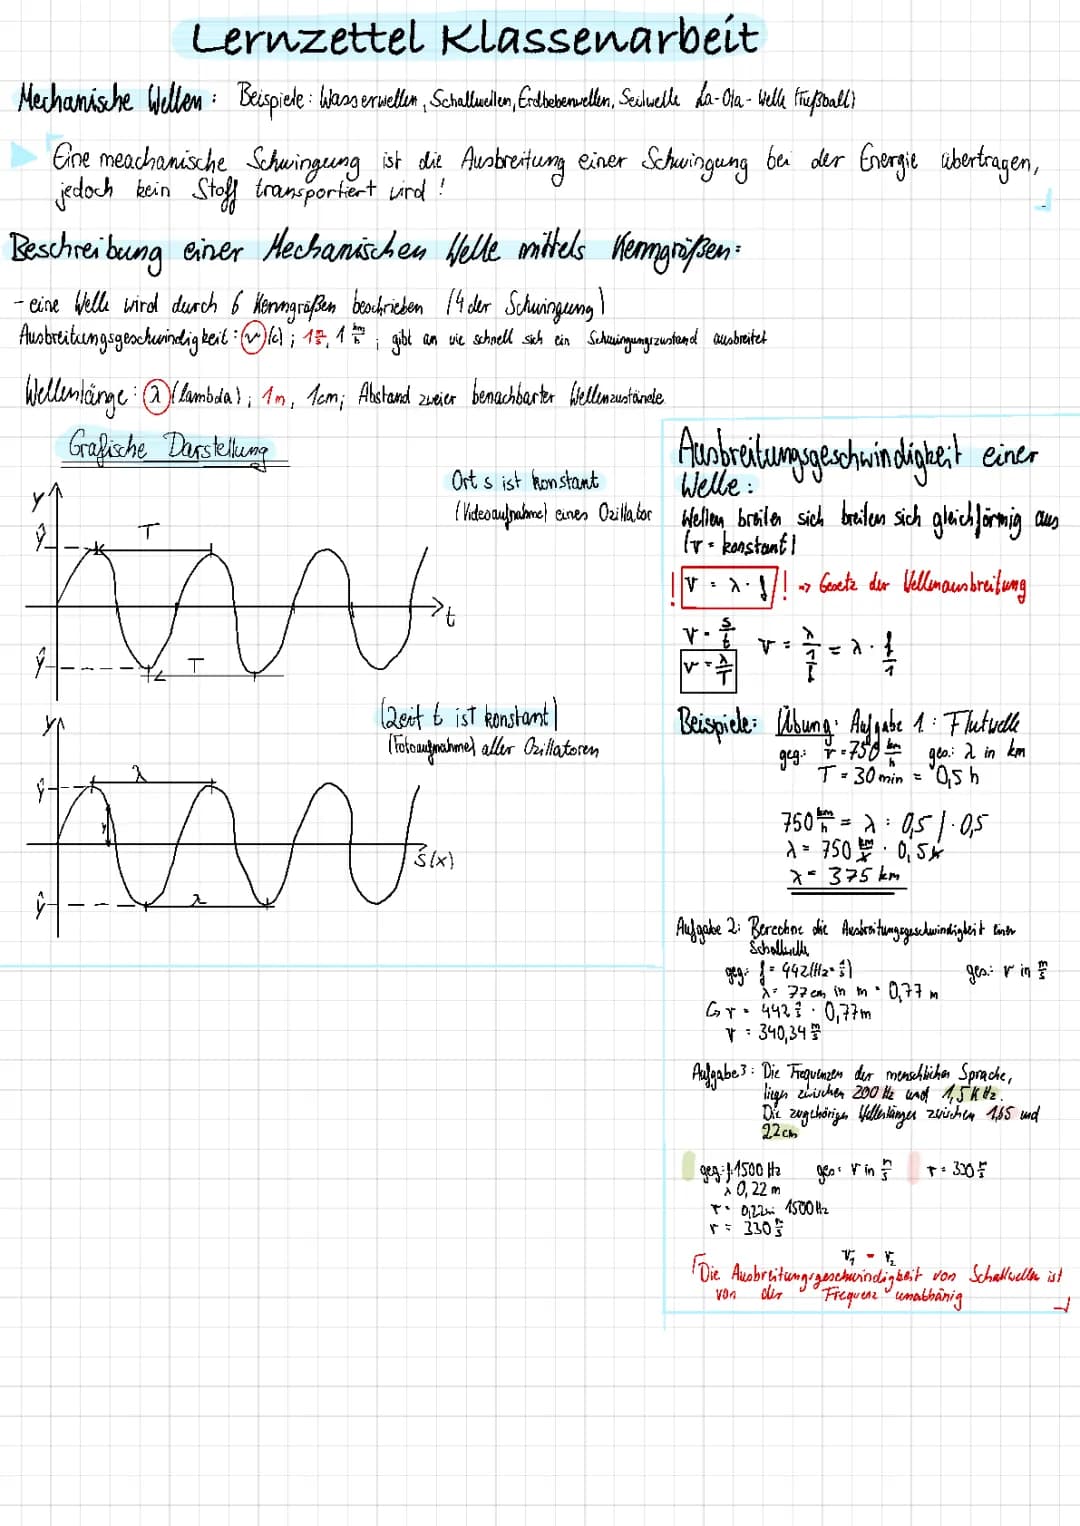 Lernzettel Klassenarbeit
Mechanische Wellen: Beispiele: Wasserwellen, Schallwellen, Erdbebenwellen, Seilwelle La-Ola-Welle (Fußball)
Eine meachanische Schwingung ist die Ausbreitung einer Schwingung bei der Energie übertragen,
jedoch kein Stoff transportiert wird!
Beschreibung einer Mechanischen Welle mittels Kenngrößen:
- eine Welle wird durch 6 Kenngrößen beschrieben (4 der Schwingung)
Ausbreitungsgeschwindigkeit: v (c); 1 m/s, 1 km/h; gibt an wie schnell sich ein Schwingungszustand ausbreitet
Wellenlänge: λ (lambda); 1m, 1cm; Abstand zweier benachbarter Wellenzustände
Grafische Darstellung
Ort s ist konstant
(Videoaufnahme) eines Ozillator
y
ŷ
T
t
ŷ
T
(Zeit t ist konstant)
(Fotoaufnahme) aller Ozillatoren
y
ŷ
λ
y
s(x)
ŷ
λ
Ausbreitungsgeschwindigkeit einer
Welle:
Wellen breiten sich breiten sich gleichförmig aus
(v = konstant)
! v = λ · f ! -> Gesetz der Wellenausbreitung
v = s/t
v = λ/T
v = λ/(1/f) = λ · f/1
Beispiele: Übung: Aufgabe 1: Flutwelle
geg.: v = 750 km/h ges.: λ in km
T = 30 min = 0,5 h
750 km/h = λ : 0,5 / · 0,5
λ = 750 km/h · 0,5h
λ = 375 km
Aufgabe 2: Berechne die Ausbreitungsgeschwindigkeit einer
Schallwelle
geg: f = 442(Hz = 1/s) ges.: v in m/s
λ = 77 cm in m = 0,77 m
v = 442 1/s · 0,77m
v = 340,34 m/s
Aufgabe 3: Die Frequenzen der menschlichen Sprache,
liegen zwischen 200 Hz und 1,5 KHz.
Die zugehörigen Wellenlängen zwischen 1,65 und
22cm
geg: f 1500 Hz ges: v in m/s v = 330 m/s
λ 0,22 m
v = 0,22m · 1500 Hz
v = 330 m/s
v₁ = v₂
Die Ausbreitungsgeschwindigkeit von Schallwellen ist
von der Frequenz unabhänig